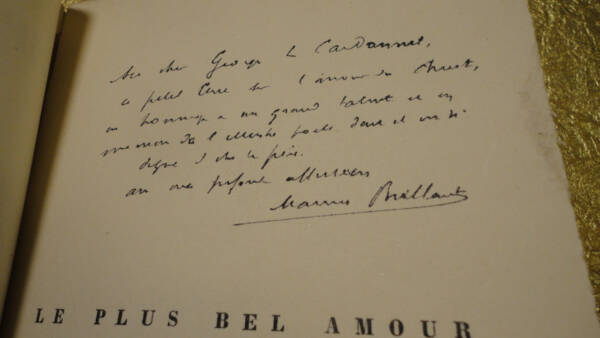 Au cher George Le Cardonnel,
ce petit livre sur l'amour du Christ,
en hommage à un grand talent et en
mémoire de l'illustre poète dont il est si
digne d'être le frère.
avec ma profonde affection
Maurice Brillant
LE PLUS BEL AMOUR